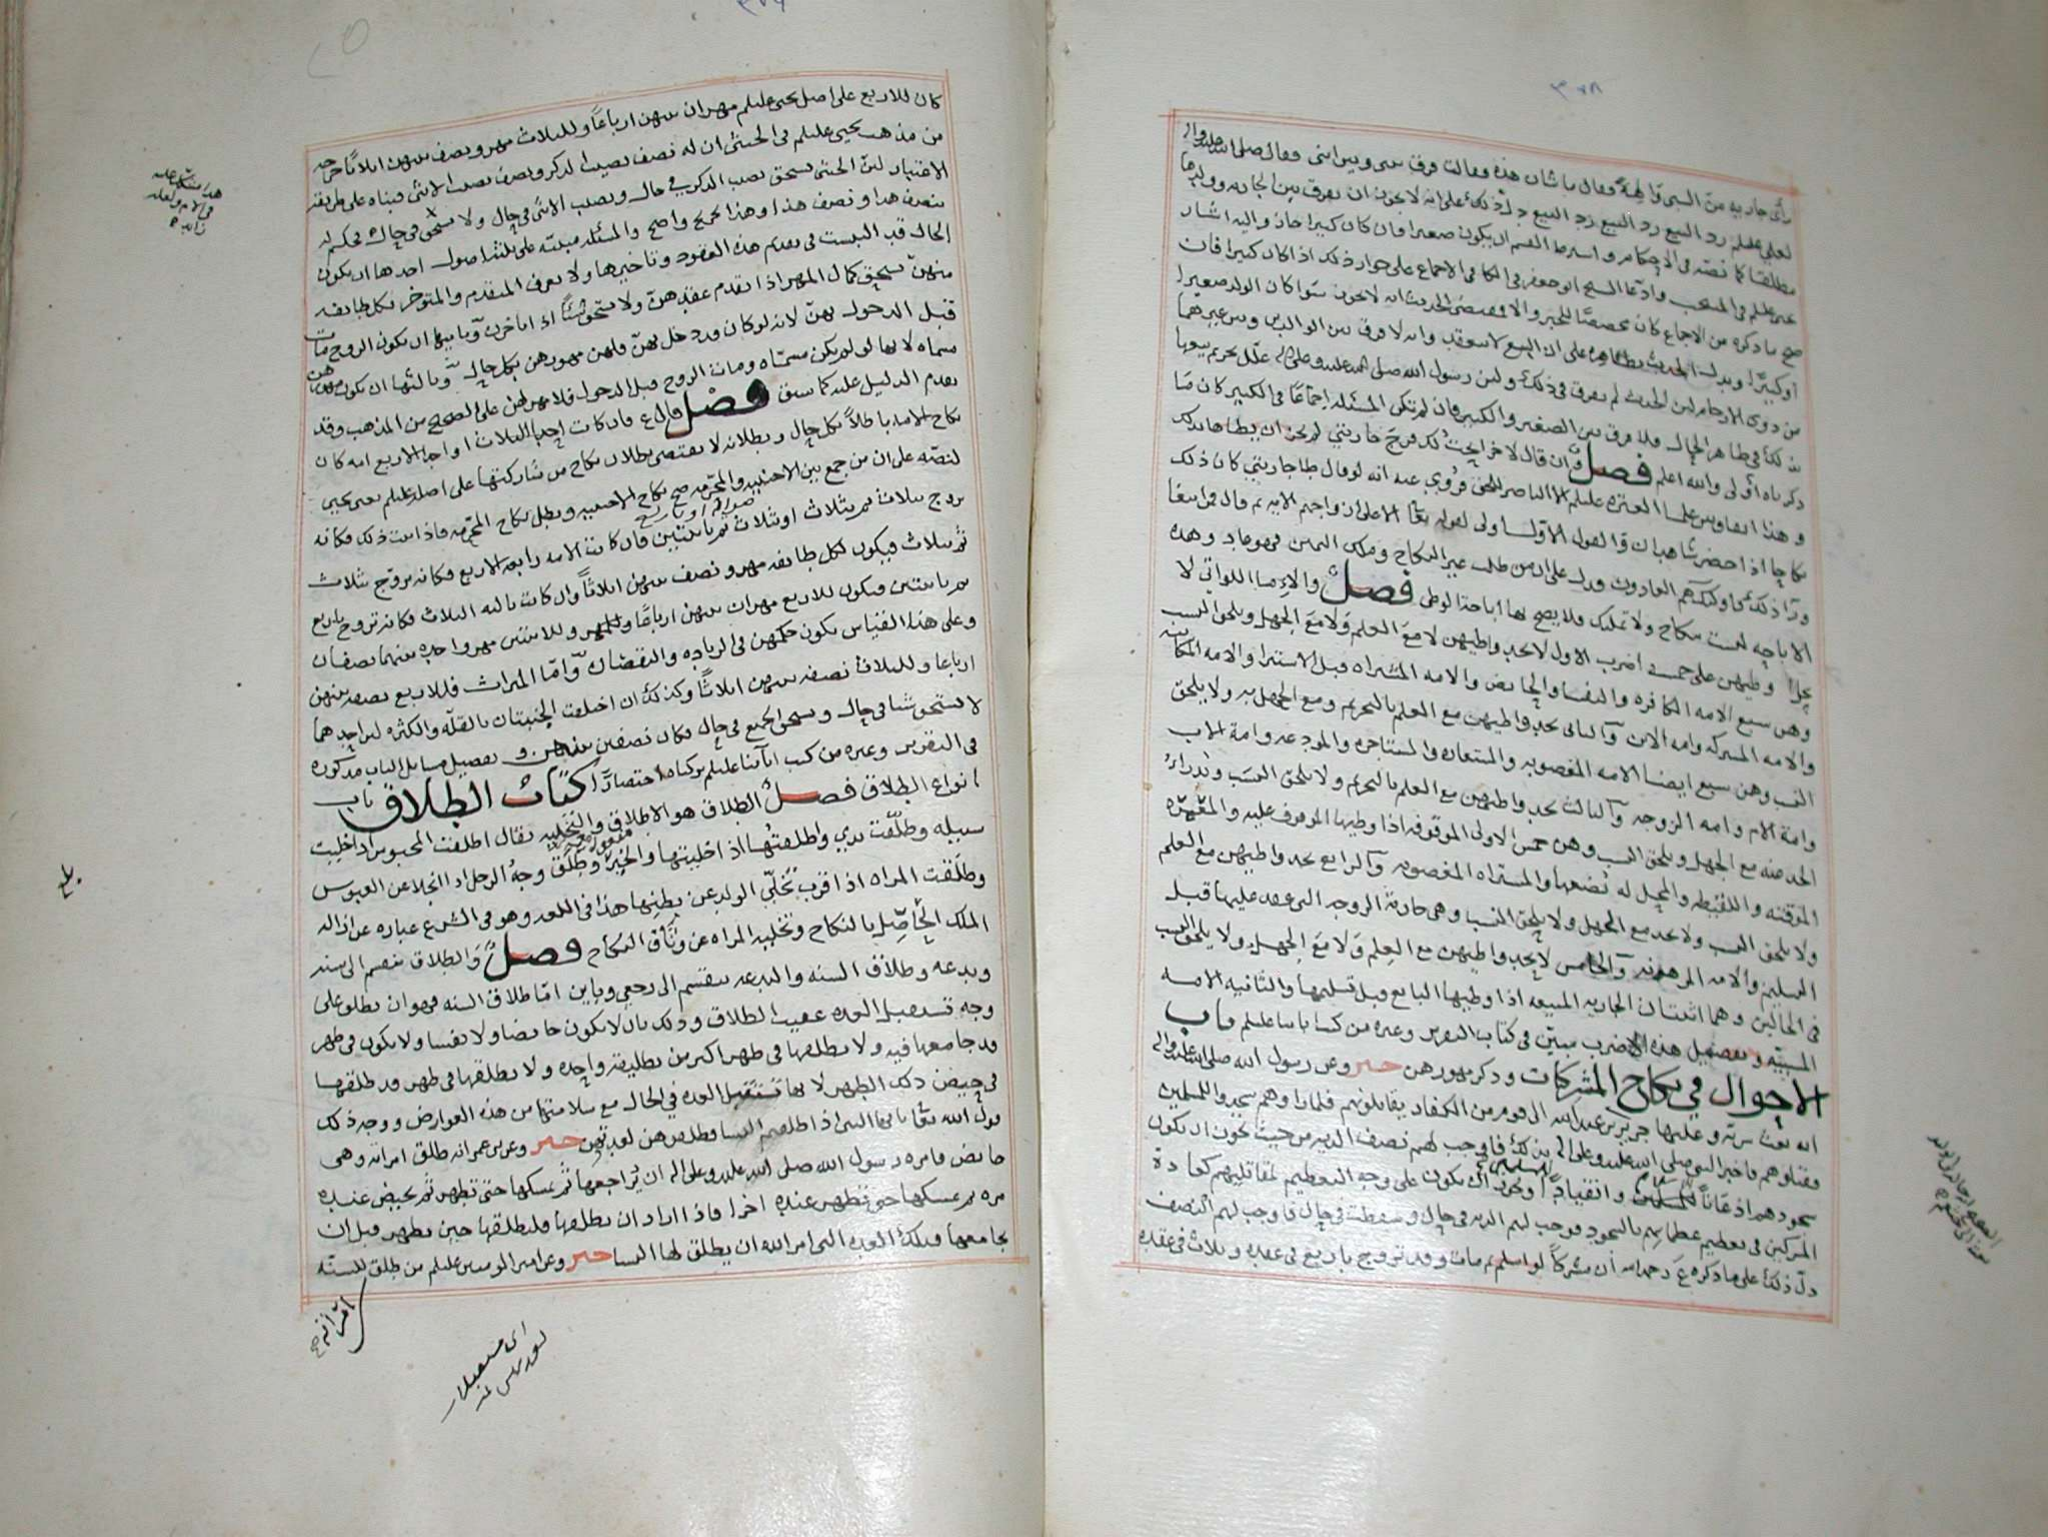 ٣٧٨
رأى جارية من السبي والهة فقال ما شأن هذه فقالت فرق بيني وبين ابني فقال صلى الله عليه واله
لعلي عليلم رد البيع رد البيع رد البيع دل ذلك على انه لا يجوز ان يفرق بين الجارية وولدها
مطلقا كما نصه في الاحكام واشترط القسم ان يكون صغيرا فان كان كبيرا جاز واليه اشار
يحيى عليلم في المنتخب وادعا الشيخ ابو جعفر في الكافي الاجماع على جواز ذلك اذا كان كبيرا فان
صح ما ذكره من الاجماع كان مخصصا للخبر والا فمقتضى الحديث انه لا يجوز سوا كان الولد صغيرا
او كبيرا ويدل الحديث بظاهره على ان البيع لا ينعقد وانه لا فرق بين الوالدين وبين غيرهما
من ذوي الارحام لان الحديث لم يفرق في ذلك ولان رسول الله صلى الله عليه وعلى اله علل تحريم بيعها
بذلك في ظاهر الحال فلا فرق بين الصغير والكبير فان لم تكن المسئلة اجماعا في الكبير كان ما
ذكرناه أولى والله اعلم فصل وان قال لاخر ابحت لك فرج جاريتي لم يجز ان يطاها بذلك
وهذا اتفاق بين علما العترة عليلم الا الناصر للحق فروي عنه انه لو قال طا جاريتي كان ذلك
نكاحا اذا حضر شاهدان والقول الاول اولى لقوله تعا الا على ازواجهم الاية ثم قال فمن ابتغا
ورآ ذلك فاولئك هم العادون فدل على ان من طلب غير النكاح وملك اليمين فهو عاد وهذه
الاباحة ليست بنكاح ولا تمليك فلا يصح لها اباحة الوطي فصل والاما اللواتي لا
يحل وطيهن على خمسة اضرب الاول لا يحد واطيهن لا مع العلم ولا مع الجهل ويلحق النسب
وهن سبع الامة الكافرة والنفسا والحائض والامة المشتراه قبل الاستبرا والامة المكاتبة
والامة المشتركة وامة الابن والثاني يحد واطيهن مع العلم بالتحريم ومع الجهل به ولا يلحق
النسب وهن سبع ايضا الامة المغصوبة والمستعارة والمستاجرة والمودعة وامة الاب
وامة الام وامة الزوجة والثالث يحد واطيهن مع العلم بالتحريم ولا يلحق النسب وتدراء
الحد عنه مع الجهل ويلحق النسب وهن خمس الاولى الموقوفة اذا وطيها الموقوف عليه والمعمرة
الموقتة واللقيطة والمحل له بضعها والمشتراه المغصوبة والرابع يحد واطيهن مع العلم
ولا يلحق النسب ولا يحد مع الجهل ولا يلحق النسب وهي جارية الزوجة التي عقد عليها قبل
التسليم والامة المرهونة والخامس لا يحد واطيهن مع العلم ولا مع الجهل ولا يلحق النسب
في الحالين وهما اثنتان الجارية المبيعة اذا وطيها البايع قبل تسليمها والثانية الامة
المسبية وتفصيل هذه الاضرب مبين في كتاب التقرير وغيره من كتب ابائنا عليلم باب
الاحوال في نكاح المشركات وذكر مهورهن خبر وعن رسول الله صلى الله عليه واله
انه بعث سرية وعليها جرير بن عبدالله الى قوم من الكفار يقاتلونهم فلما راوهم سجدوا للمسلمين
وقتلوهم فاخبر النبي صلى الله عليه وعلى اله بذلك فاوجب لهم نصف الدية من حيث يجوز ان يكون
سجودهم اذعانا للمسلمين وانقيادا ويجوز ان يكون على وجه التعظيم لمقاتليهم كعادة
المشركين في تعظيم عظمائهم بالسجود فوجب لهم الدية في حال وسقطت في حال فاوجب لهم النصف
دل ذلك على ما ذكره ع رحمه الله ان مشركا لو اسلم ثم مات وقد تزوج باربع في عقدة وثلاث في عقدة
كان للاربع على اصل يحيى عليلم مهران بينهن ارباعا وللثلاث مهر ونصف بينهن اثلاثا خرجه
من مذهب يحيى عليلم في الخنثى ان له نصف نصيب الذكر ونصف نصيب الانثى فبناه على طريقة
الاعتبار لان الخنثى يستحق نصيب الذكر في حال ونصيب الانثى في حال ولا يستحق في حال فحكم له
بنصف هذا ونصف هذا وهذا تخريج واضح والمسئلة مبنية على ثلثة اصول احدها ان يكون
الحال قد التبست في تقدم هذه العقود وتاخيرها ولا يعرف المتقدم والمتوخر فكل طائفة
منهن تستحق كمال المهر اذا تقدم عقدهن ولا تستحق شيئا اذا تاخرن وثانيها ان يكون الزوج مات
قبل الدخول بهن لانه لو كان قد دخل بهن فلهن مهورهن بكل حال وثالثها ان يكون مهرهن
مسماه لانها لو لم يكن مسماه ومات الزوج قبل الدخول فلا مهر لهن على الصحيح من المذهب وقد
تقدم الدليل عليه كما سبق فصل قال ع فان كانت احدا الثلاث او احدا الاربع امة كان
نكاح الامة باطلا بكل حال وبطلانه لا يقتضي بطلان نكاح من شاركتها على اصله عليلم يعني يحيى
لنصه على ان من جمع بين الاجنبية والمحرمة صح نكاح الاجنبية وبطل نكاح المحرمة فاذا ثبت ذلك فكانه
تزوج بثلاث ثم بثلاث او بثلاث ثم باثنتين فان كانت الامة رابعة الاربع فكانه تزوج ثلاث
ثم بثلاث فيكون لكل طائفة مهر ونصف بينهن اثلاثا وان كانت ثالثة الثلاث فكانه تزوج باربع
ثم باثنتين فيكون للاربع مهران بينهن ارباعا وللاثنتين مهر واحد بينهما نصفان
وعلى هذا القياس يكون حكمهن في الزيادة والنقصان واما الميراث فللاربع نصفه بينهن
ارباعا وللثلاث نصفه بينهن اثلاثا وكذلك ان اختلفت الجنبتان بالقلة والكثرة لان احدهما
لا تستحق شيا في حال وتستحق الجميع في حال فكان نصفين بينهن وتفصيل مسائل الباب مذكورة
في التقرير وغيره من كتب ابآئنا عليلم تركناه اختصارا كتاب الطلاق باب
انواع الطلاق فصل الطلاق هو الاطلاق والتخلية يقال اطلقت المحبوس اذا خليت
سبيله وطلقت يدي واطلقتها اذ اخليتها والخير وطلق وجه الرجل اذا انجلا عن العبوس
وطلقت المراه اذا اقرب تخلي الولد عن بطنها هذا في اللغة وهو في الشرع عبارة عن ازالة
الملك الحاصل بالنكاح وتخلية المراه عن وثاق النكاح فصل والطلاق ينقسم الى سنة
وبدعة وطلاق السنة والبدعة ينقسم الى رجعي وباين اما طلاق السنة فهو ان يطلق على
وجه تستقبل العدة عقيب الطلاق وذلك بان لا يكون حائضا ولا نفسا ولا يكون في طهر
قد جامعها فيه ولا يطلقها في طهر اكثر من تطليقة واحدة ولا يطلقها في طهر قد طلقها
في حيض ذلك الطهر لانها تستقبل العدة في الحال مع سلامتها من هذه العوارض ووجه ذلك
قول الله تعا يا ايها النبي اذا طلقتم النسا فطلقوهن لعدتهن خبر وعن بن عمر انه طلق امراته وهي
حائض فامره رسول الله صلى الله عليه وعلى اله ان يراجعها ثم يمسكها حتى تطهر ثم تحيض عنده
مره ثم يمسكها حتى تطهر عنده اخرا فاذا اراد ان يطلقها فليطلقها حين تطهر قبل ان
يجامعها فتلك العدة التي امر الله ان يطلق لها النسا خبر وعن امير المومنين عليلم من طلق للسنة